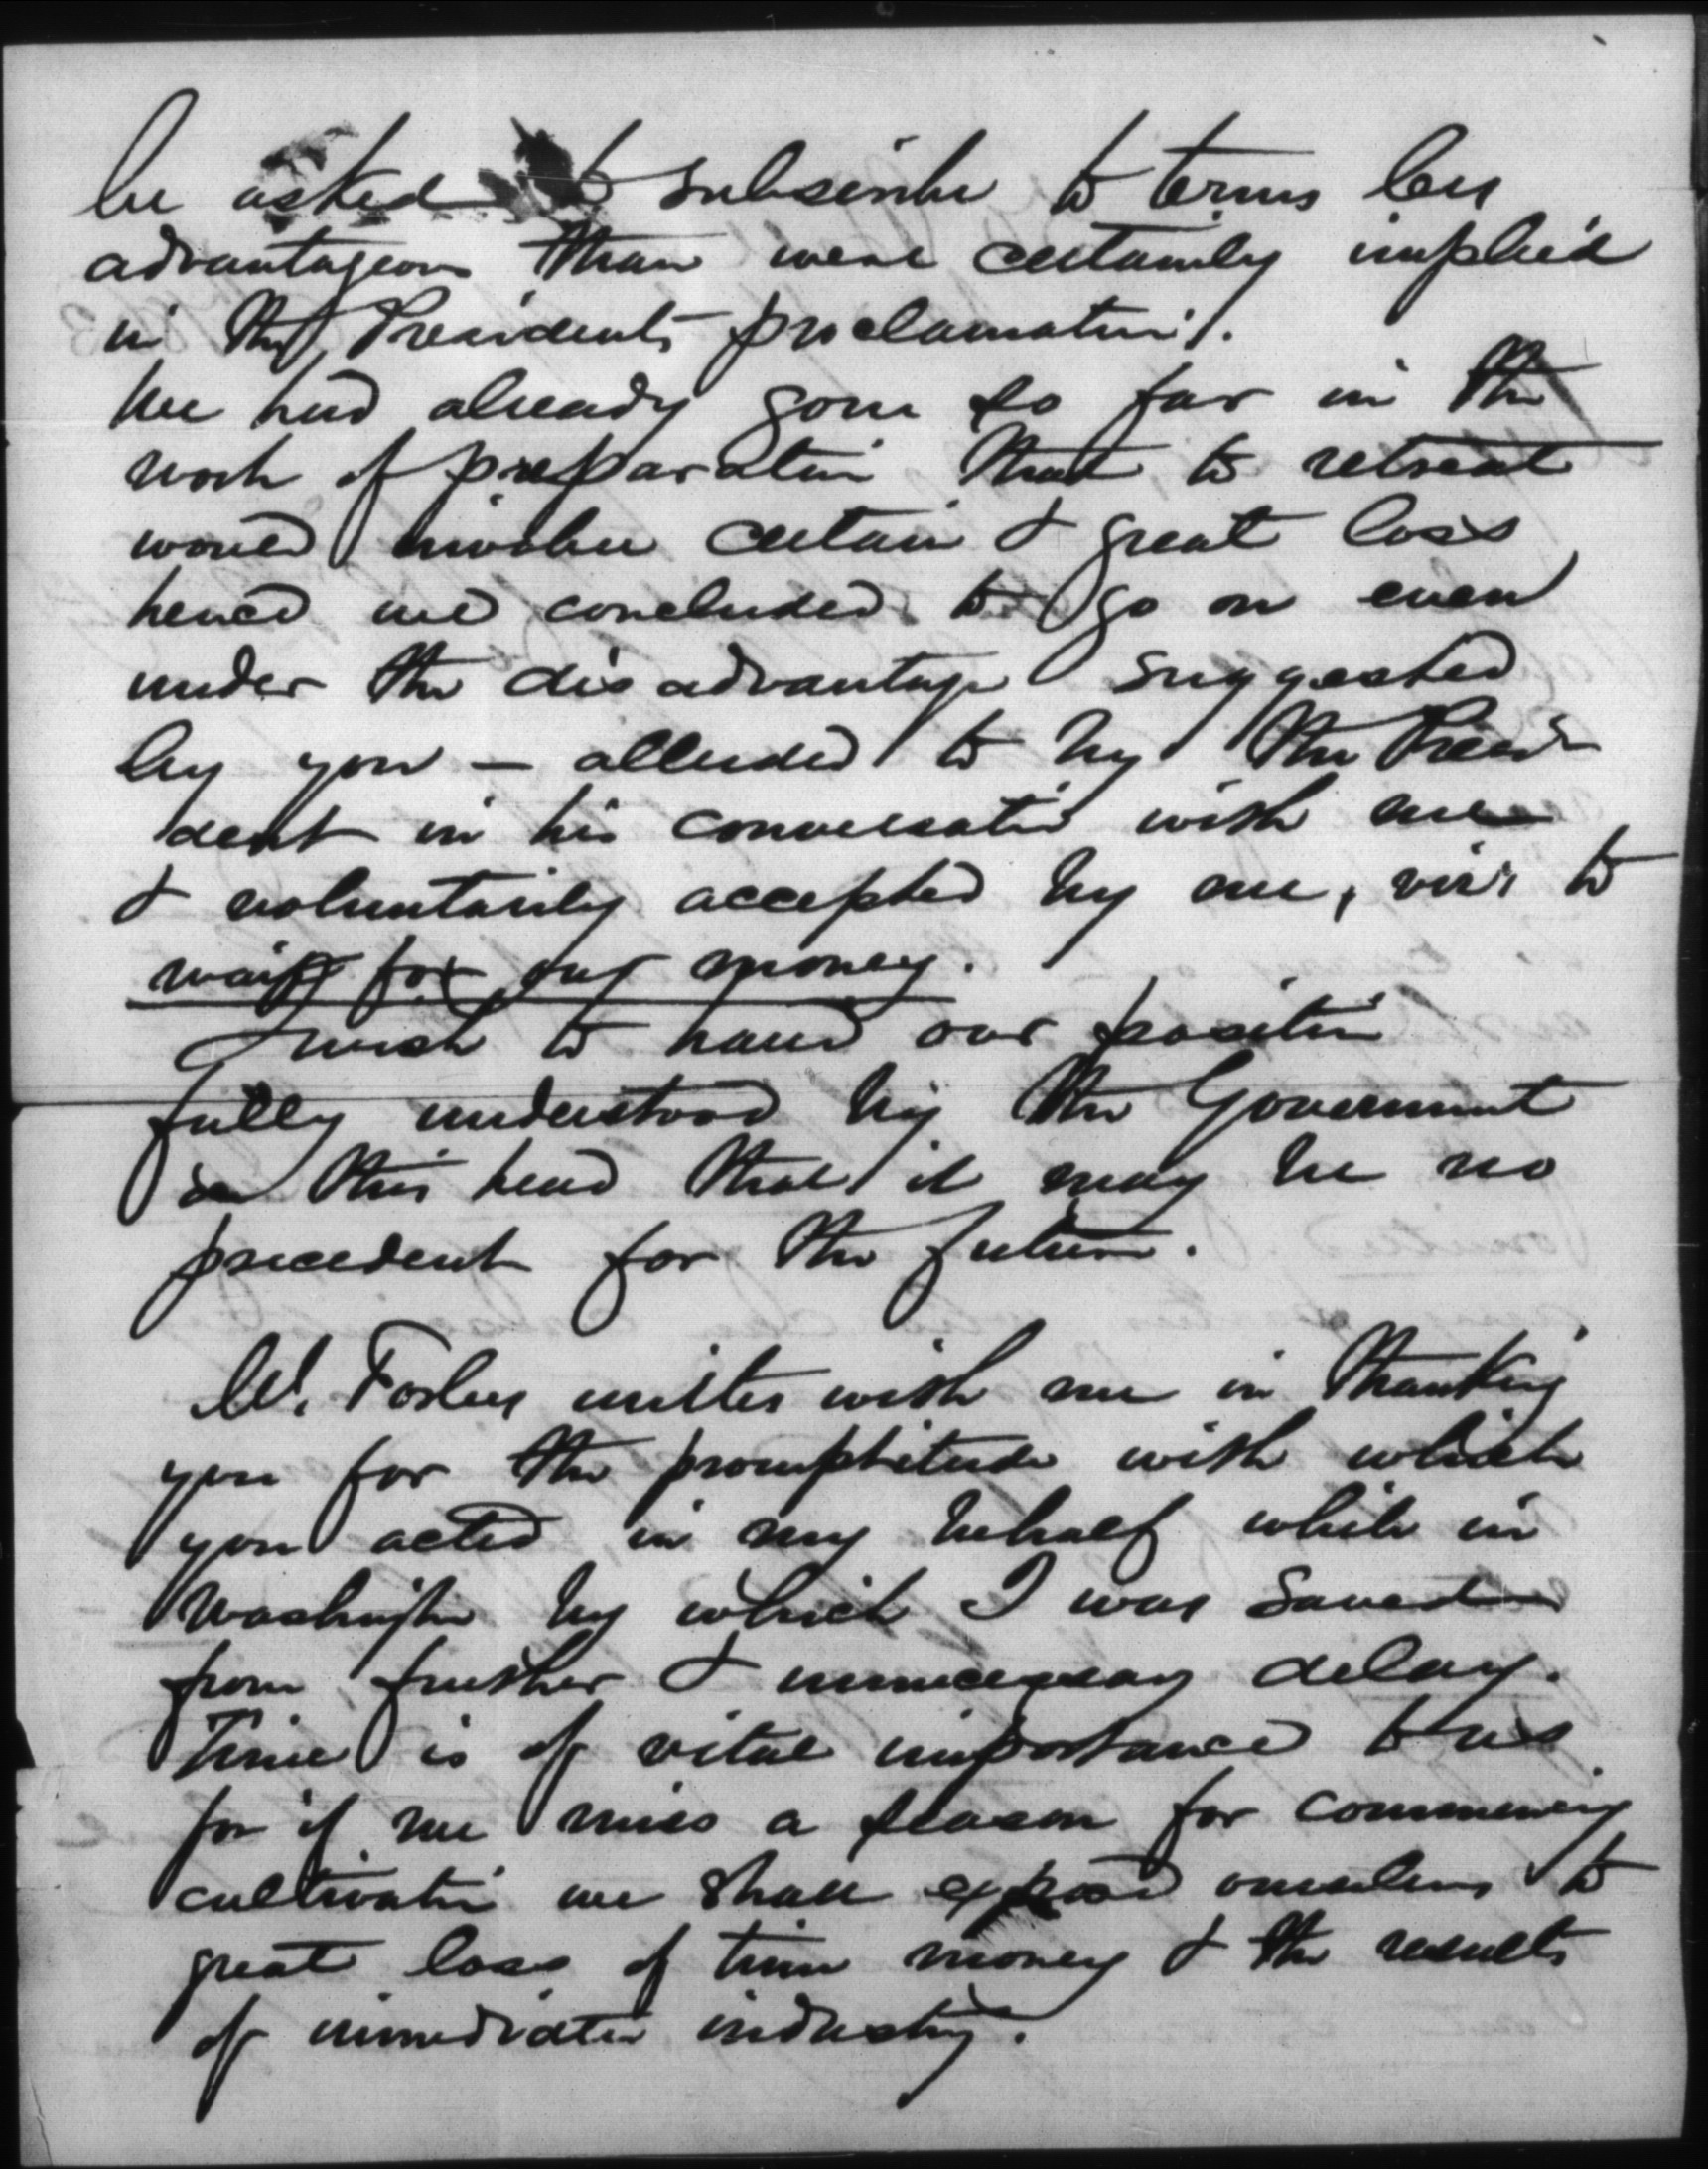 be asked to subscribe to terms less
advantageous than were certainly implied
in the Presidents proclamation.
We had already gone so far in the
work of preparation that to retreat
would involve certain & great loss
hence we concluded to go on even
under the disadvantage suggested
by you – alluded to by the Presi-
dent in his conversation with me
& voluntarily accepted by me, viz to
wait for our money.
I wish to have our position
fully understood by the Government
on this head that it may be no
precedent for the future.
Mr. Forbes unites with me in thanking
you for the promptitude with which
you acted in my behalf while in
Washington by which I was saved
from further & unnecessary delay.
Time is of vital importance to us
for if we miss a season for commencing
cultivation we shall expose ourselves to
great loss of time money & the results
of immediate industry.